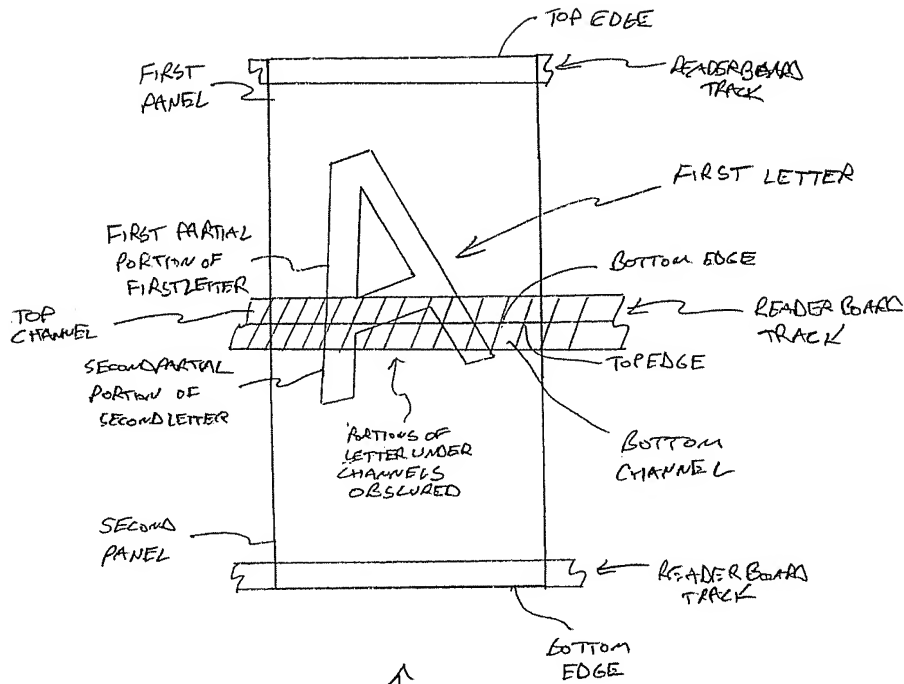 TOP EDGE
FIRST
PANEL
READERBOARD
TRACK
FIRST LETTER
FIRST PARTIAL
PORTION OF
FIRST LETTER
BOTTOM EDGE
TOP
CHANNEL
READER BOARD
TRACK
TOP EDGE
SECOND PARTIAL
PORTION OF
SECOND LETTER
PORTIONS OF
LETTER UNDER
CHANNELS
OBSCURED
BOTTOM
CHANNEL
SECOND
PANEL
READER BOARD
TRACK
BOTTOM
EDGE
A